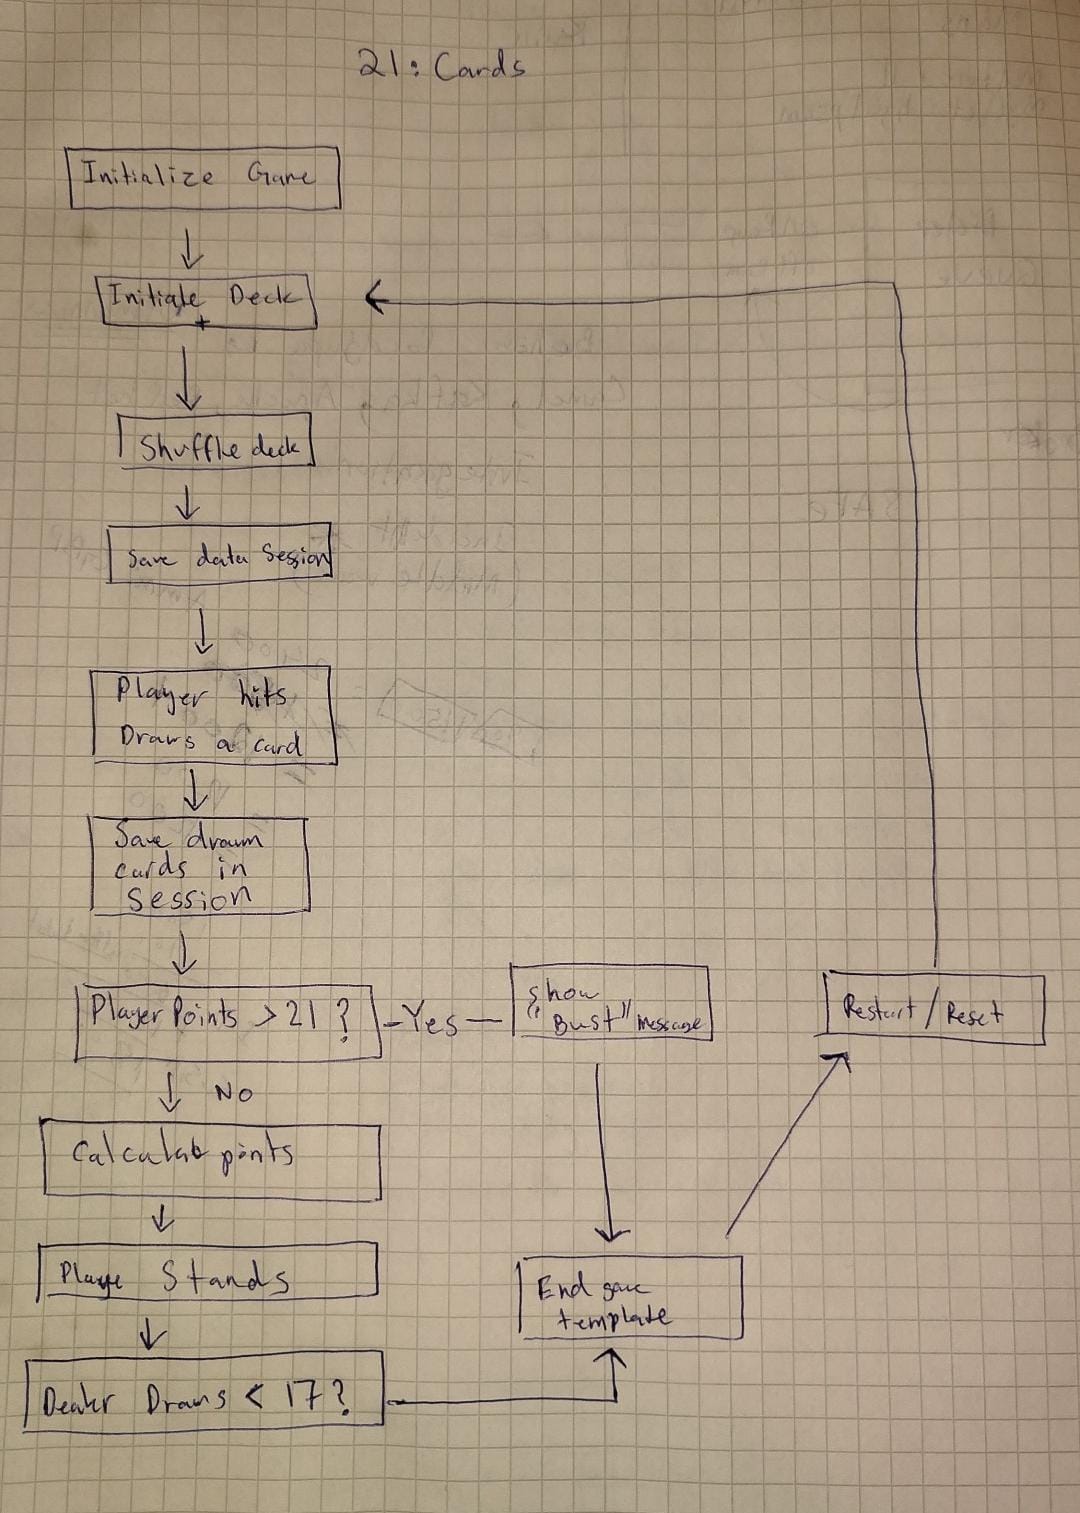 21: Cards
Initialize Game
Initiate Deck
Shuffle deck
Save data Session
Player hits
Draws a card
Save drawn
cards in
session
Player Points > 21 ?
Yes
Show
"Bust" message
Restart / Reset
NO
Calculate points
Playe Stands
End game
template
Dealer Draws < 17 ?